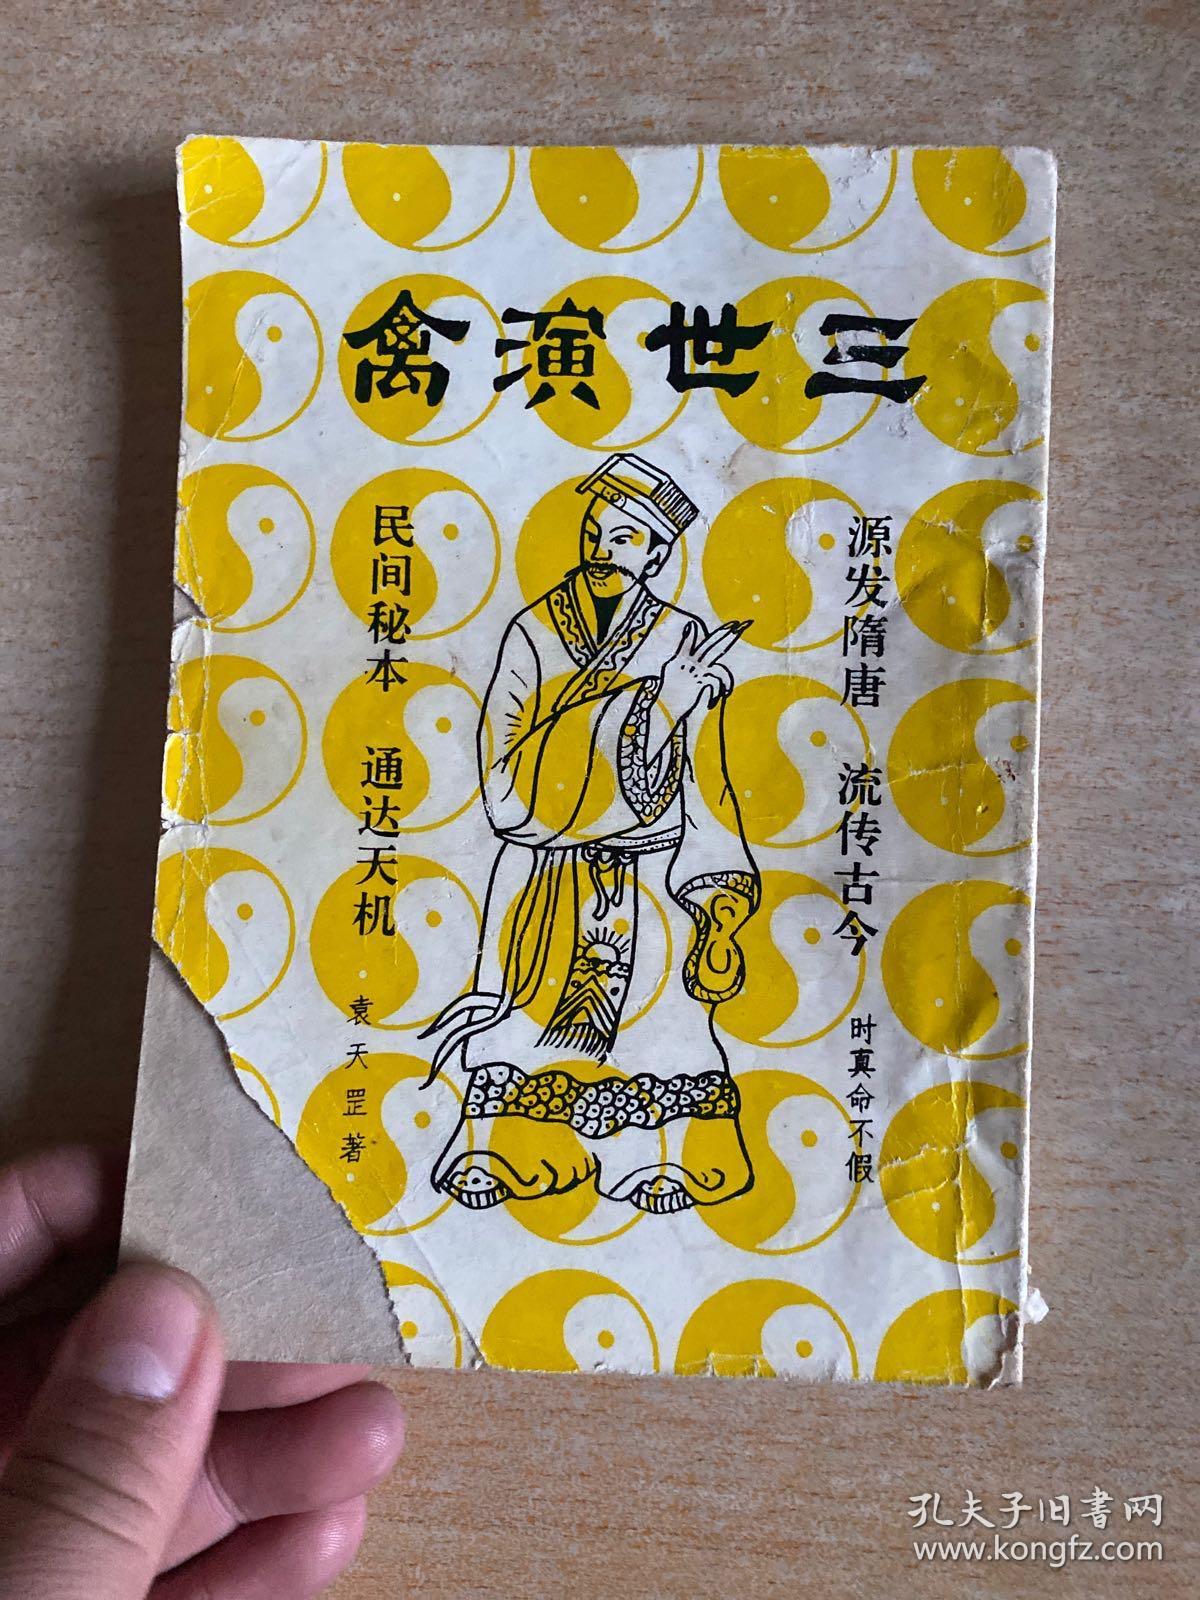 三世演禽
源发隋唐 流传古今
时真命不假
民间秘本 通达天机
袁天罡著
孔夫子旧書网
www.kongfz.com